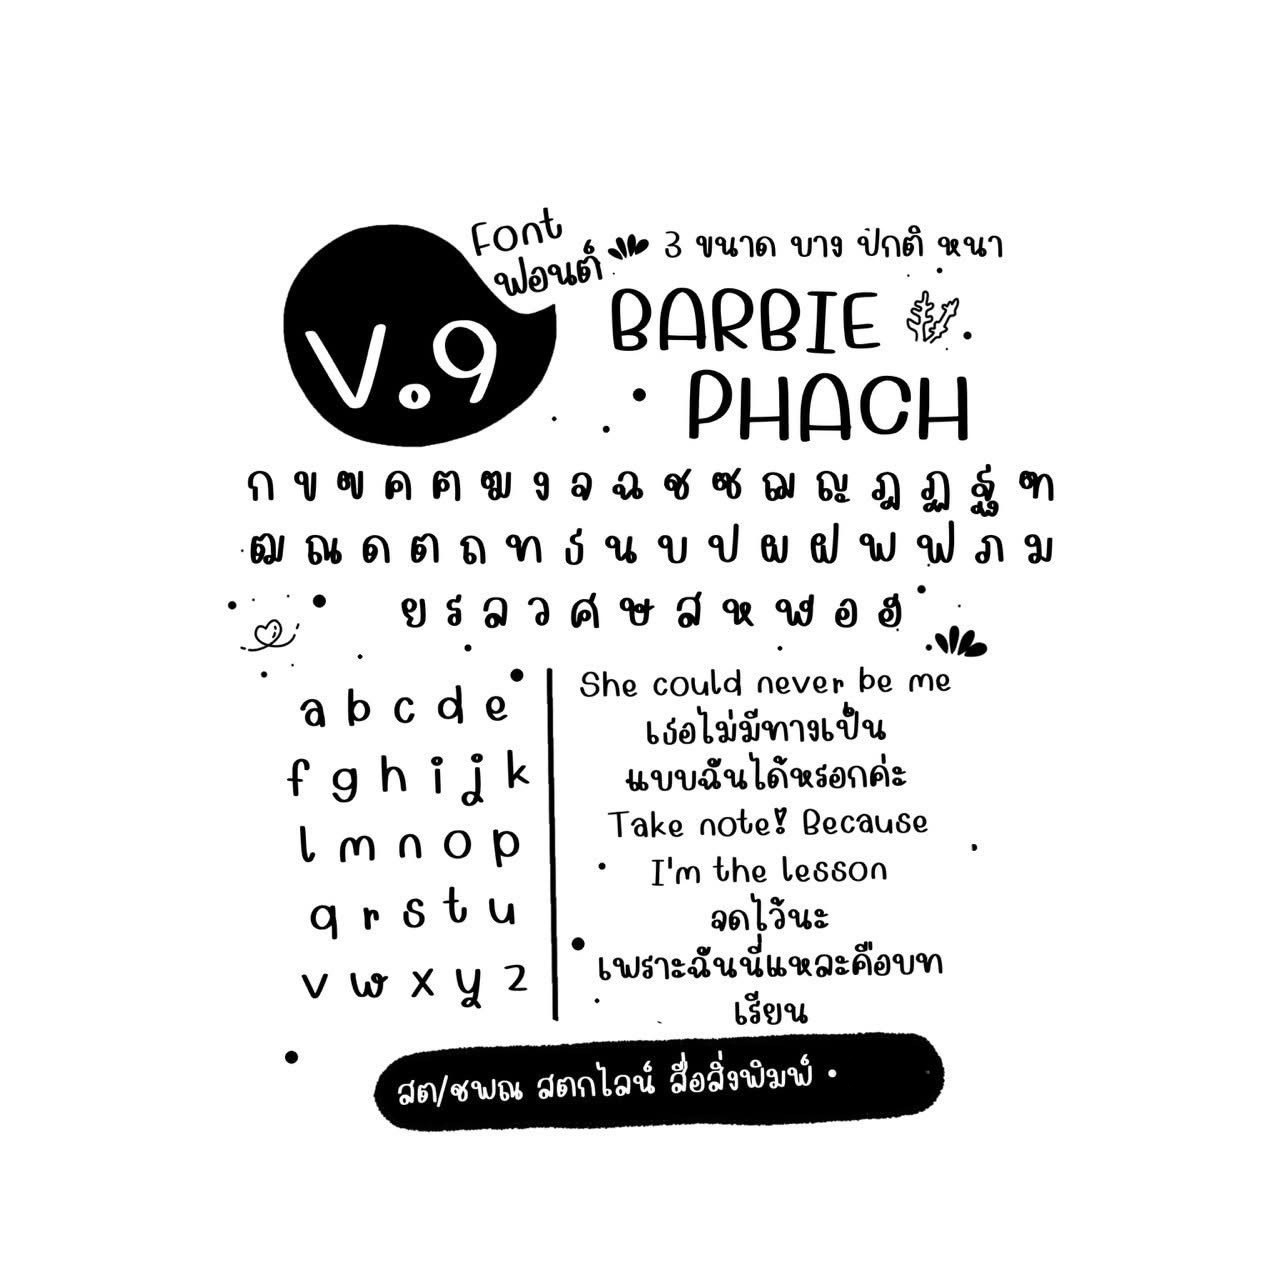 Font
ฟอนต์
V.9
3 ขนาด บาง ปกติ หนา
BARBIE
PHACH
ก ข ฃ ค ฅ ฆ ง จ ฉ ช ซ ฌ ญ ฎ ฏ ฐ ฑ
ฒ ณ ด ต ถ ท ธ น บ ป ผ ฝ พ ฟ ภ ม
ย ร ล ว ศ ษ ส ห ฬ อ ฮ
a b c d e
f g h i j k
l m n o p
q r s t u
v w x y z
She could never be me
เธอไม่มีทางเป็น
แบบฉันได้หรอกค่ะ
Take note! Because
I'm the lesson
จดไว้นะ
เพราะฉันนี่แหละคือบท
เรียน
สต/ชพณ สตกไลน์ สื่อสิ่งพิมพ์